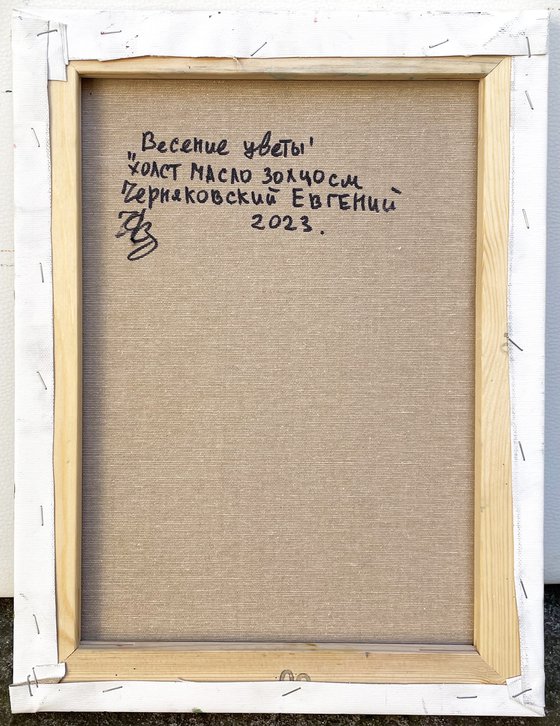 Весение цветы"
"холст масло 30х40см
Черняковский Евгений
2023.